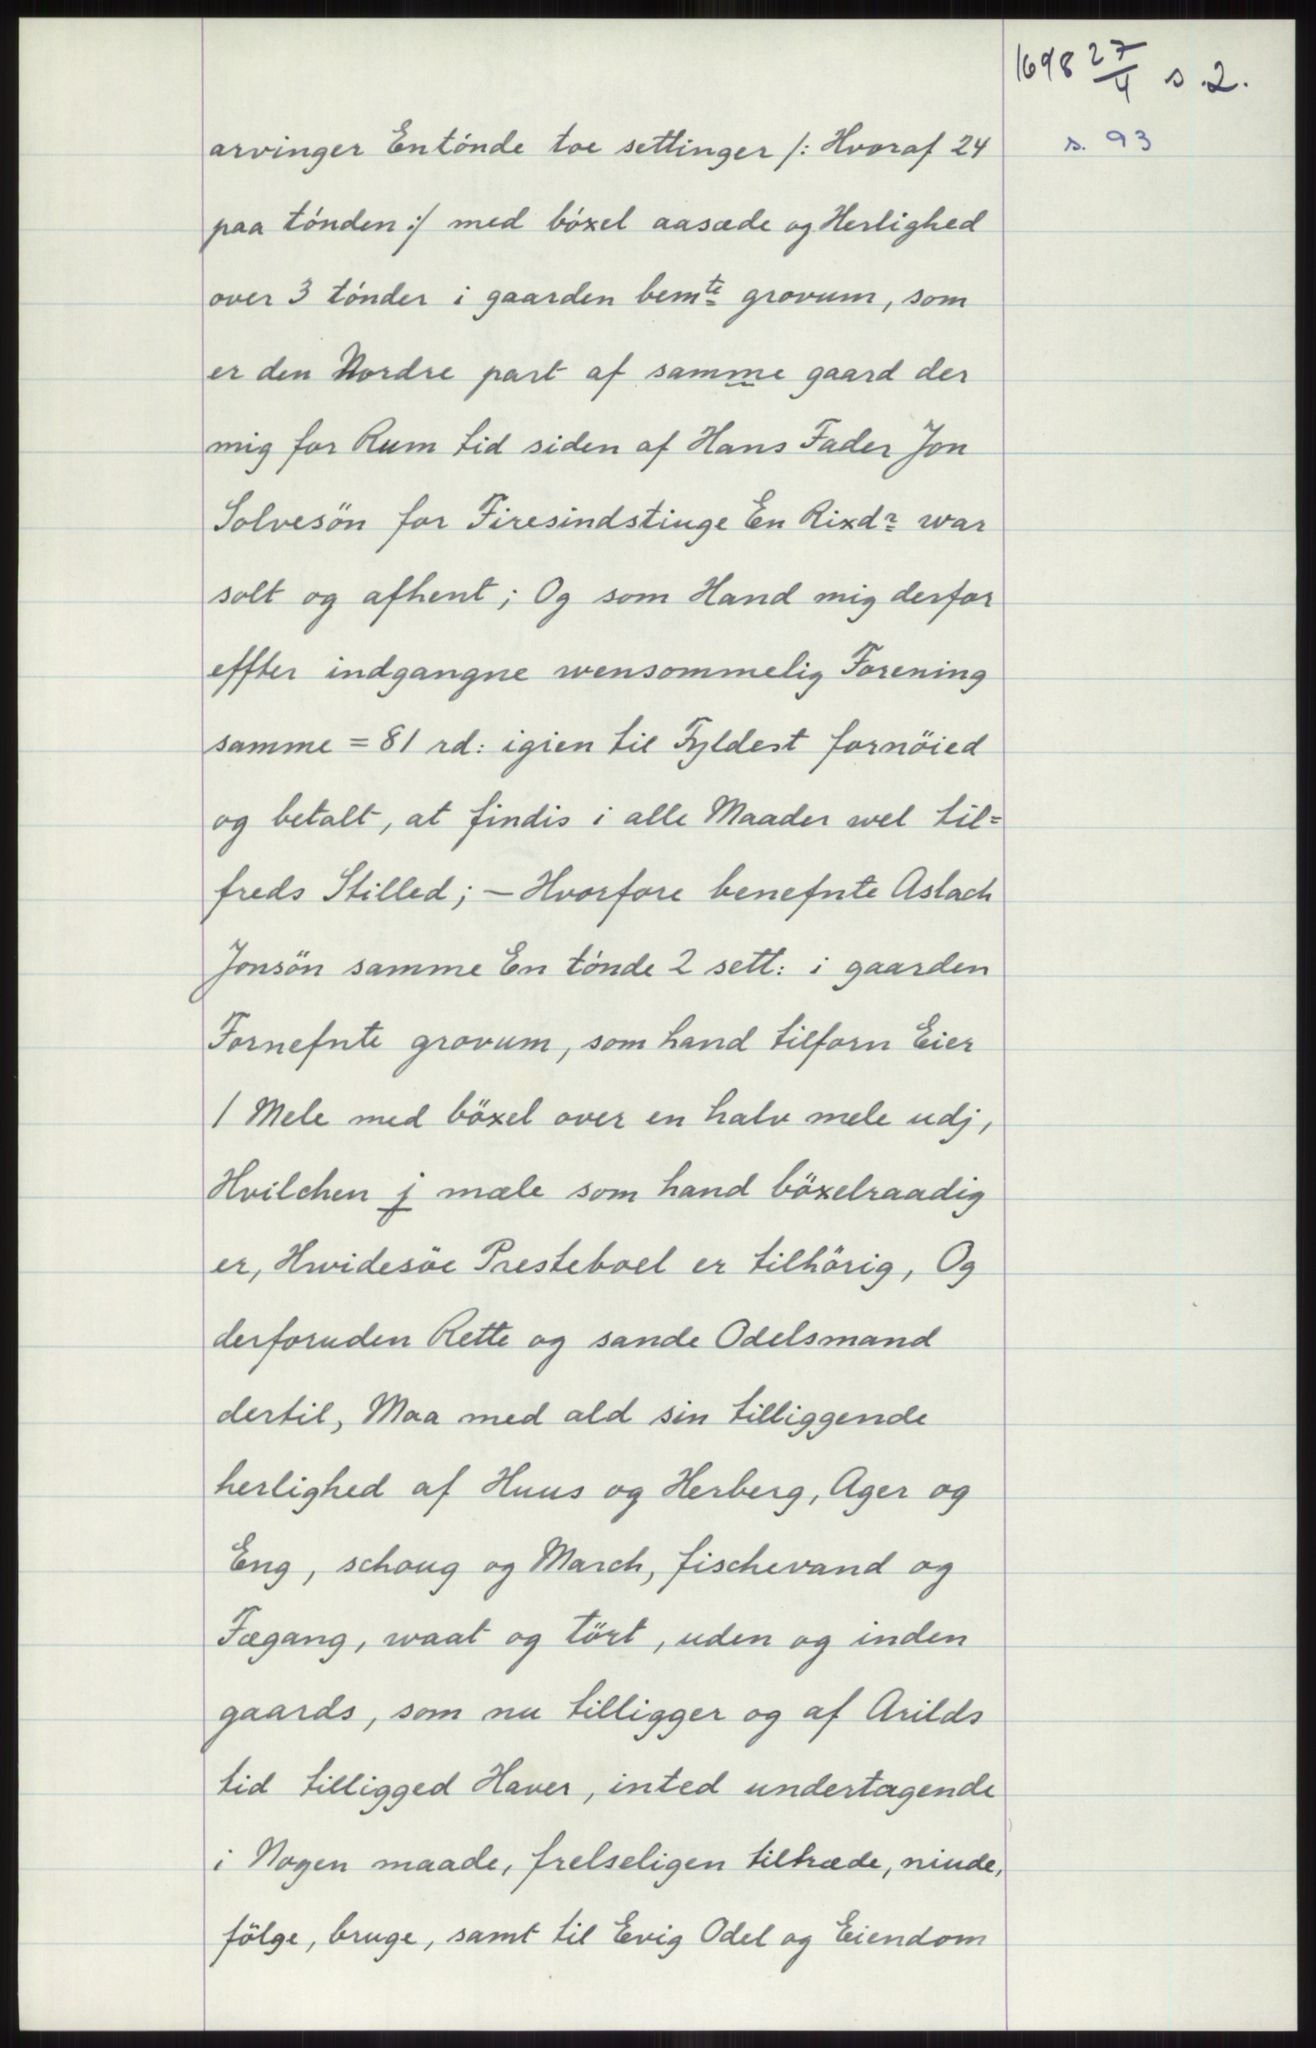 1698 27/4 s. 2.
s. 93
arvinger En tónde toe settinger /: Hvoraf 24
paa tónden :/ med bóxel aasæde og Herlighed
over 3 tónder i gaarden bemte grovum, som
er den Nordre part af samme gaard der
mig for Rum tid siden af Hans Fader Jon
Solvesön for Firesindstiuge En Rixdr war
solt og afhent; Og som Hand mig derfor
effter indgangne wensommelig Forening
samme = 81 rd: igien til Fyldest fornöied
og betalt, at findis i alle Maader wel til=
freds Stilled; — Hvorfore benefnte Aslach
Jonsön samme En tónde 2 sett: i gaarden
Fornefnte grovum, som hand tilforn Eier
1 Mele med böxel over en halv mele udj,
Hvilchen j mæle som hand böxelraadig
er, Hwidesöe Presteboel er tilhörig, Og
derforuden Rette og sande Odelsmand
dertil, Maa med ald sin tilliggende
herlighed af Huus og Herberg, Ager og
Eng, schoug og March, fischevand og
Fægang, waat og tört, uden og inden
gaards, som nu tilligger og af Arilds
tid tilligged Haver, inted undertagende
i Nogen maade, frelseligen tiltræde, niude,
fölge, bruge, samt til Evig Odel og Eiendom